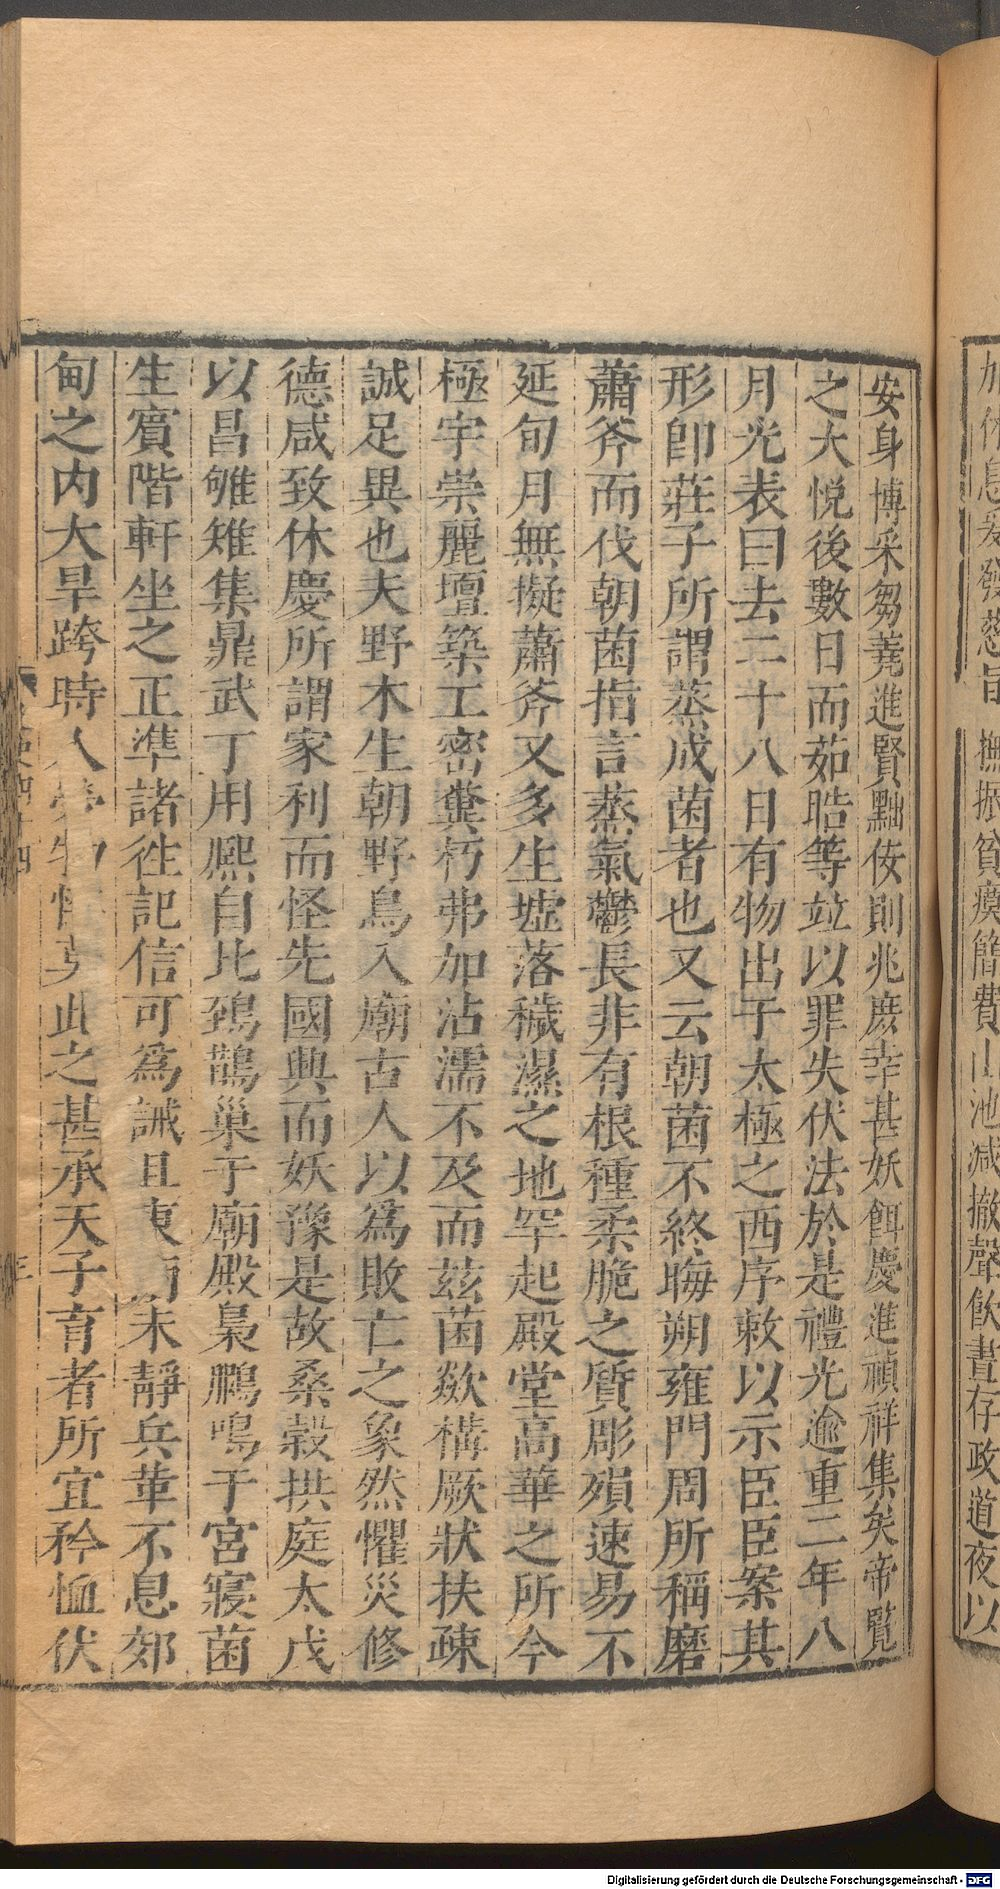 加休息爰發慈旨撫振貧瘼簡費山池減撤聲飲晝存政道夜以
安身博采芻蕘進賢黜佞則兆庶幸甚妖餌慶進禎祥集矣帝覽
之大悅後數日而茹晧等竝以罪失伏法於是禮光逾重二年八
月光表曰去二十八日有物出于太極之西序敕以示臣臣案其
形卽莊子所謂蒸成菌者也又云朝菌不終晦朔雍門周所稱磨
蕭斧而伐朝菌指言蒸氣鬱長非有根種柔脆之質彫殞速易不
延旬月無擬蕭斧又多生墟落穢濕之地罕起殿堂高華之所今
極宇崇麗壇築工密糞朽弗加沾濡不及而茲菌欻構厥狀扶疎
誠足異也夫野木生朝野鳥入廟古人以爲敗亡之象然懼災修
德咸致休慶所謂家利而怪先國興而妖豫是故桑榖拱庭太戊
以昌雊雉集鼎武丁用熈自比鵄鵲巢于廟殿梟鵩鳴于宮寢菌
生賓階軒坐之正準諸徃記信可爲誡且東南未靜兵革不息郊
甸之内大旱跨時人勞物悴莫此之甚承天子育者所宜矜恤伏
史四十四
三
Digitalisierung gefördert durch die Deutsche Forschungsgemeinschaft - DFG